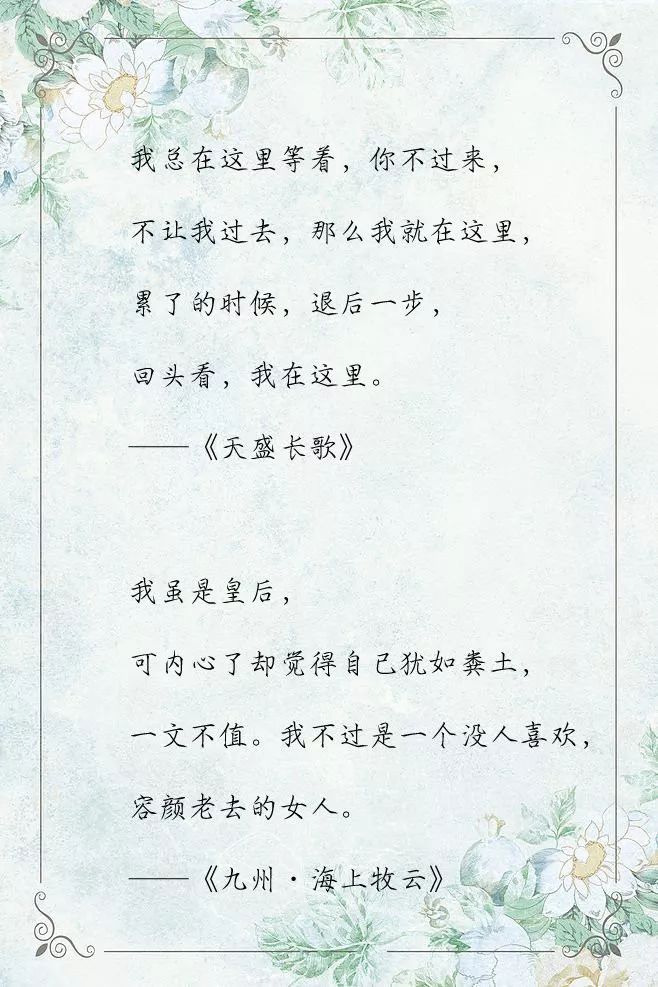 我总在这里等着，你不过来，
不让我过去，那么我就在这里，
累了的时候，退后一步，
回头看，我在这里。
——《天盛长歌》
我虽是皇后，
可内心了却觉得自己犹如粪土，
一文不值。我不过是一个没人喜欢，
容颜老去的女人。
——《九州·海上牧云》